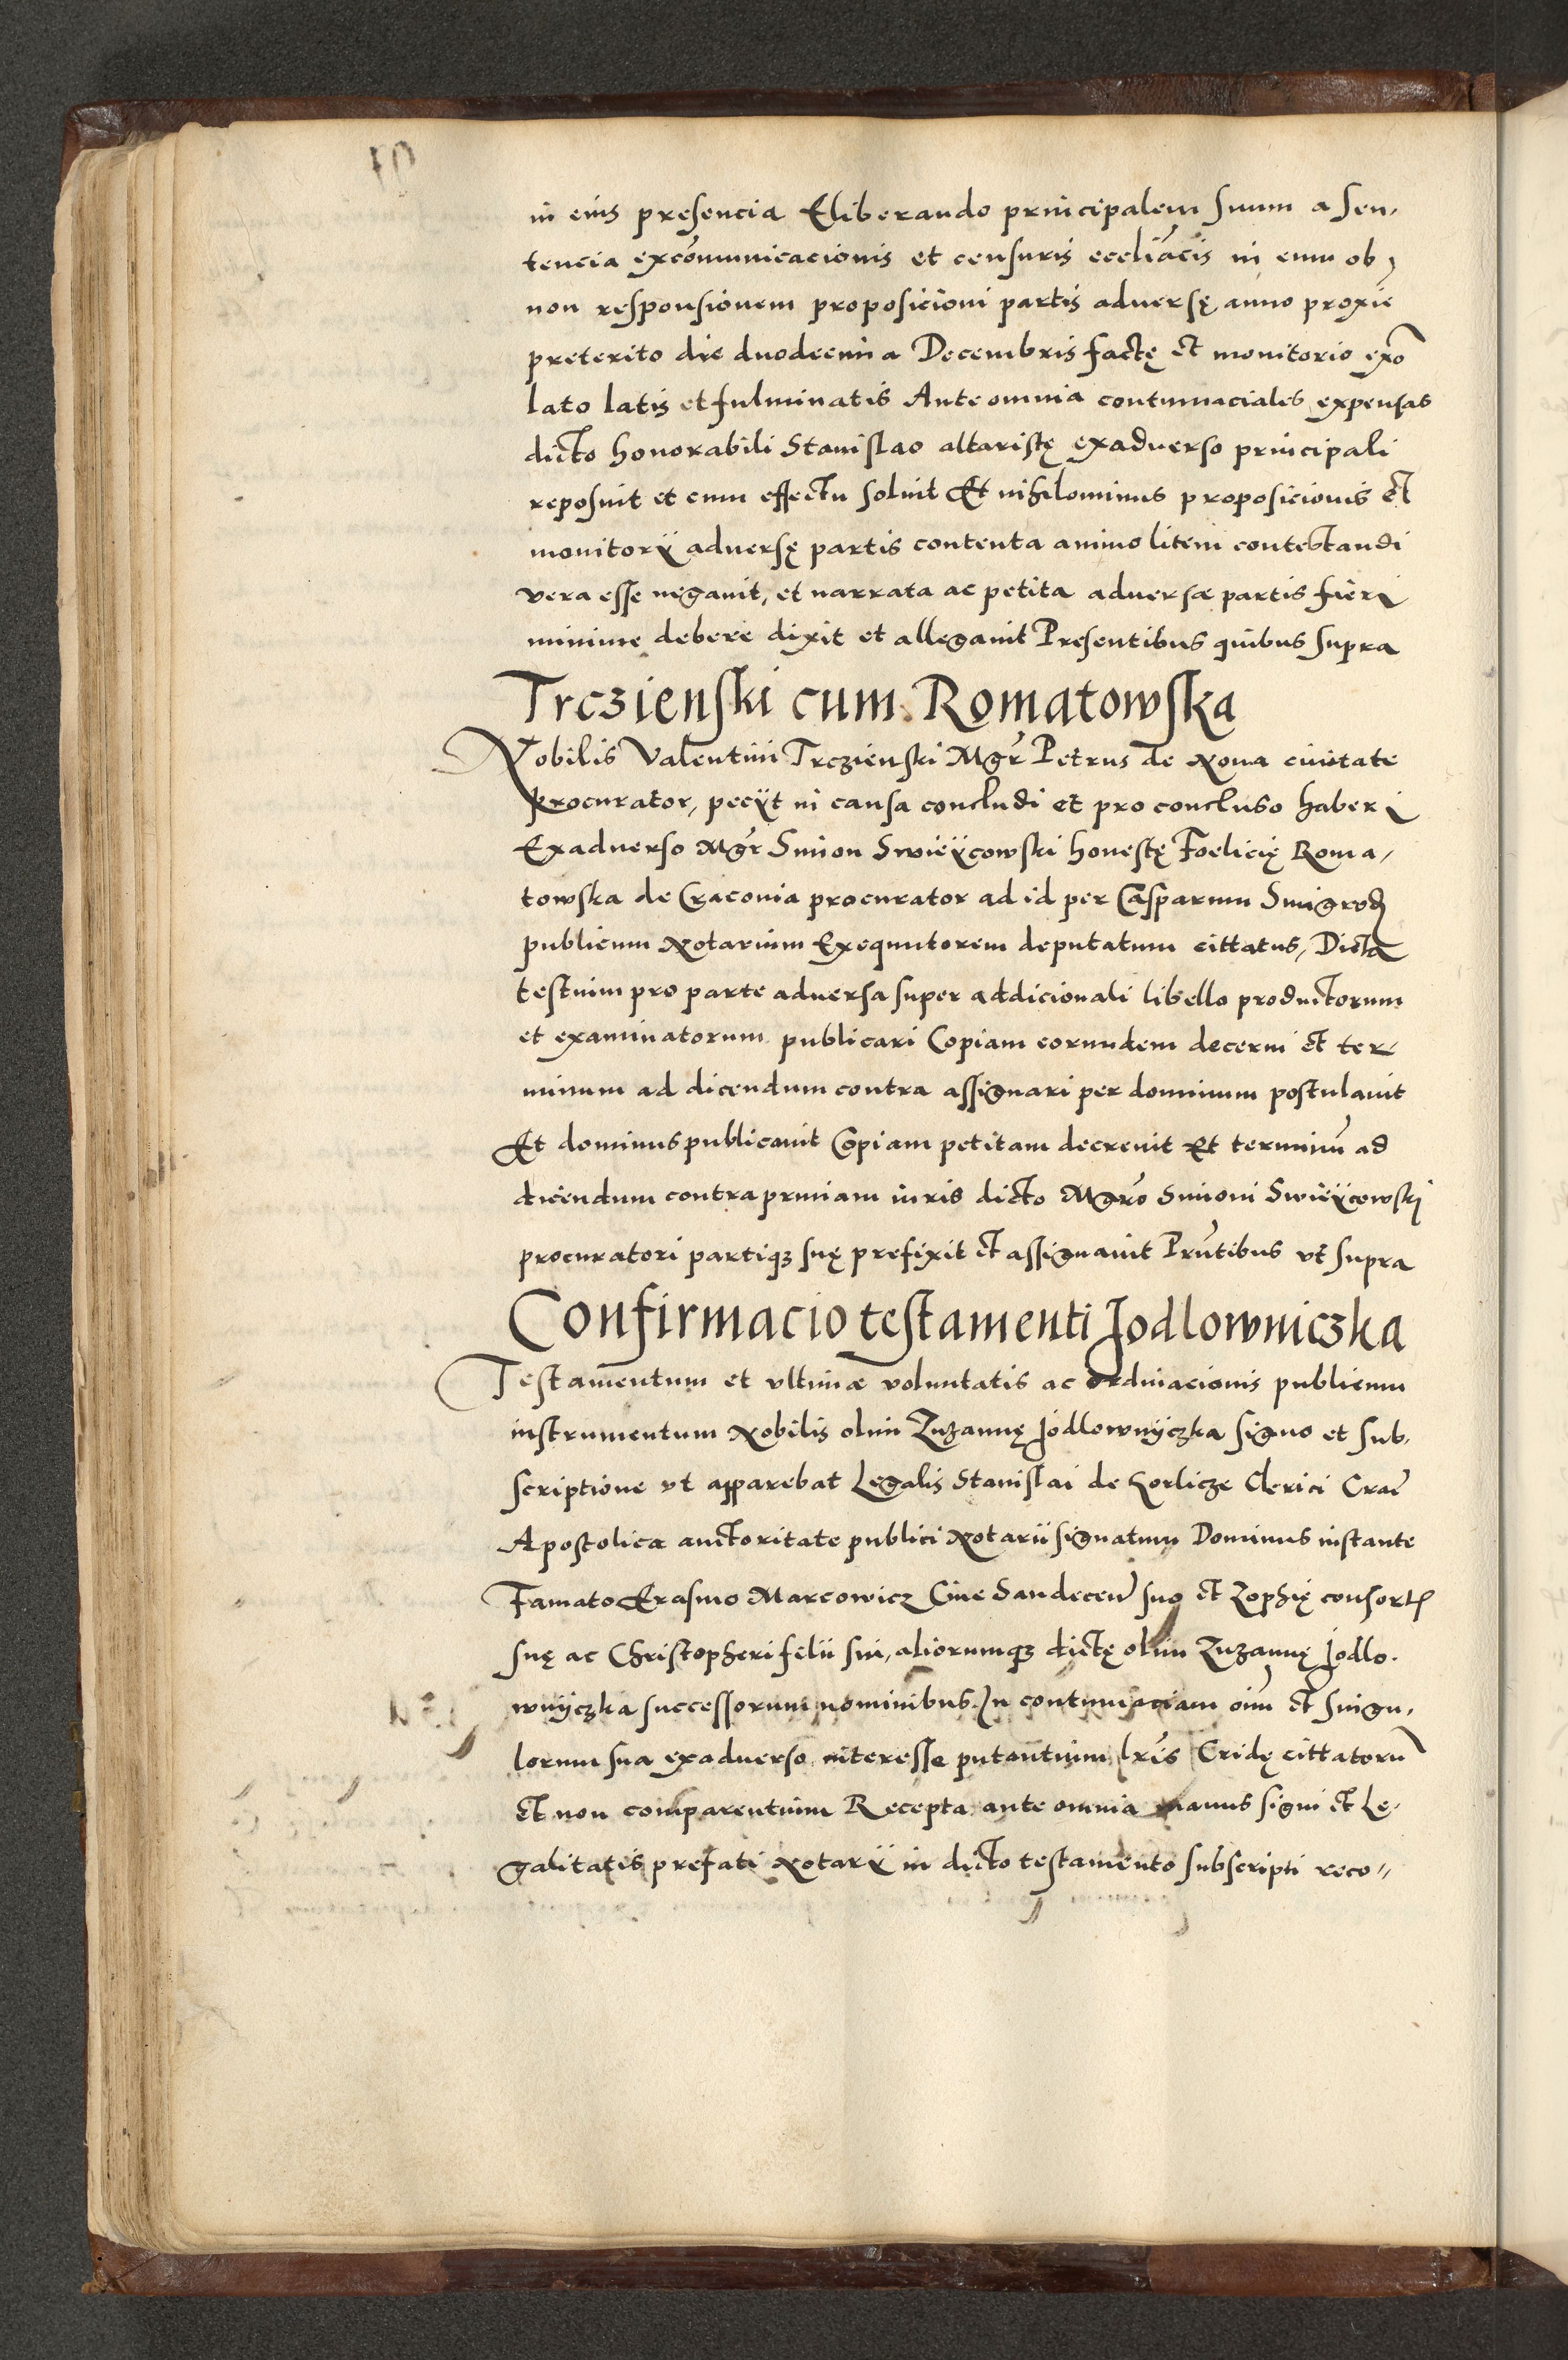 in eius presencia Eliberando principalem suum a sen,
tencia excõmunicacionis et censuris eccliãcis in eum ob
non responsionem proposicioni partis adversę anno proxie
preterito die duodecima Decembris factę et monitorio exõ
lato latis et fulminatis Ante omnia contumaciales expensas
dicto honorabili Stanislao altaristę exadverso principali
reposuit et cum effectu soluit Et nihilominus proposicionis et
monitorÿ adversę partis contenta animo litem contestandi
vera esse negavit, et narrata ac petita adversæ partis fieri
minime debere dixit et allegavit Presentibus quibus supra
Trczienski cum Romatowska
Nobilis Valentini Trczienski Mgr̃ Petrus de Nova civitate
procurator, peciÿt in causa concludi et pro concluso haberi
Exadverso Mgr̃ Simon Swieÿcowski honestę Foelicię Roma,
towska de Cracovia procurator ad id per Casparum Smigrod
publicum Notarium Exequutorem deputatum cittatus, Dicta
testium pro parte adversa super addicionali libello productorum
et examinatorum publicari Copiam eorundem decerni et ter
minum ad dicendum contra assignari per dominum postulavit
Et dominus publicavit Copiam petitam decrevit Et terminũ ad
dicendum contra primam iuris dicto Mgrõ Simoni Swieÿcowski
procuratori partiqȝ suę prefixit et assignavit Prñtibus vt supra
Confirmacio testamenti Jodlowniczka
Testamentum et vltimæ voluntatis ac ordinacionis publicum
instrumentum Nobilis olim Zuzannę Jodlownÿczka signo et sub,
scriptione vt apparebat Legalis Stanislai de Gorlicze Clerici Crac̃
Apostolica auctoritate publici Notarii signatum Dominus instante
Famato Erasmo Marcowicz Cive Sandeceñ suo et Zophię consort
suę ac Christopheri filii sui, aliorumqȝ dictę olim Zuzannę Jodlo.
wnÿczka successorum nominibus. In contumaciam oĩm et singu,
lorum sua exadverso interesse putantium lrĩs Cridę cittatorũ
et non comparentium Recepta ante omnia manus signi et Le,
galitatis prefati Notarÿ in dicto testamento subscripti reco„